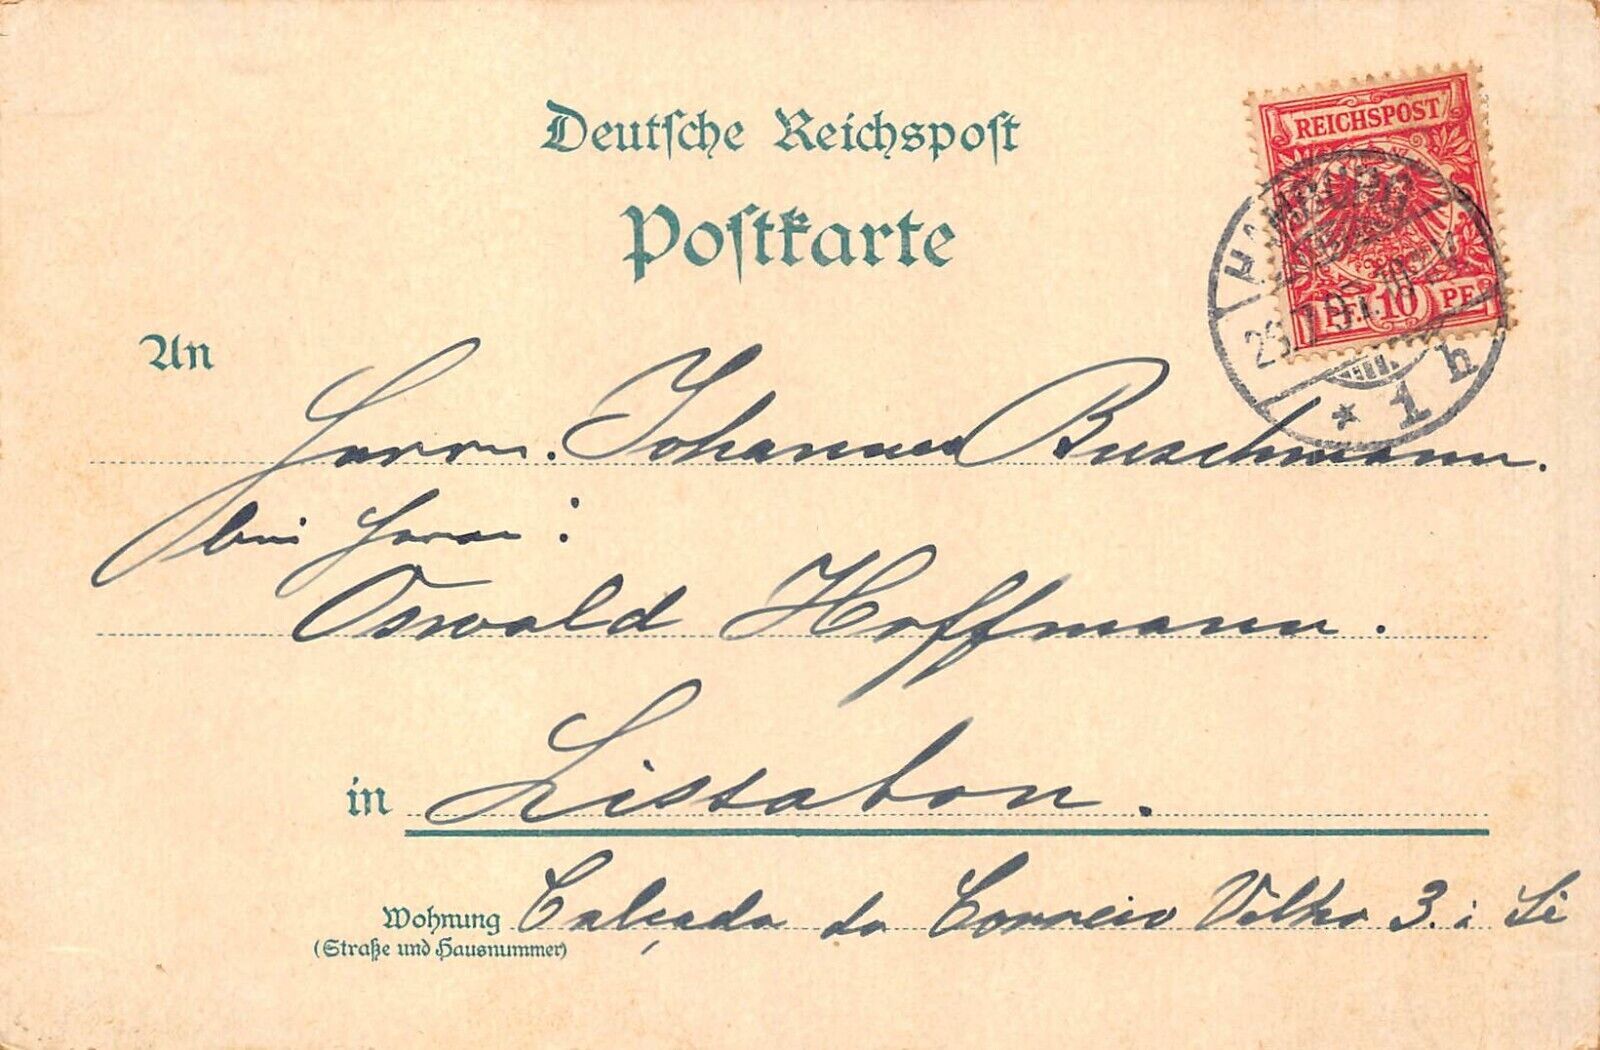 Deutsche Reichspost
Postkarte
REICHSPOST
PF. 10 PF.
HAMBURG
* 1 h
An
Herrn. Johannes Buschmann.
bei Herrn:
Oswald Hoffmann.
in Lissabon.
Wohnung Calçada do Correio Velho 3.
(Straße und Hausnummer)